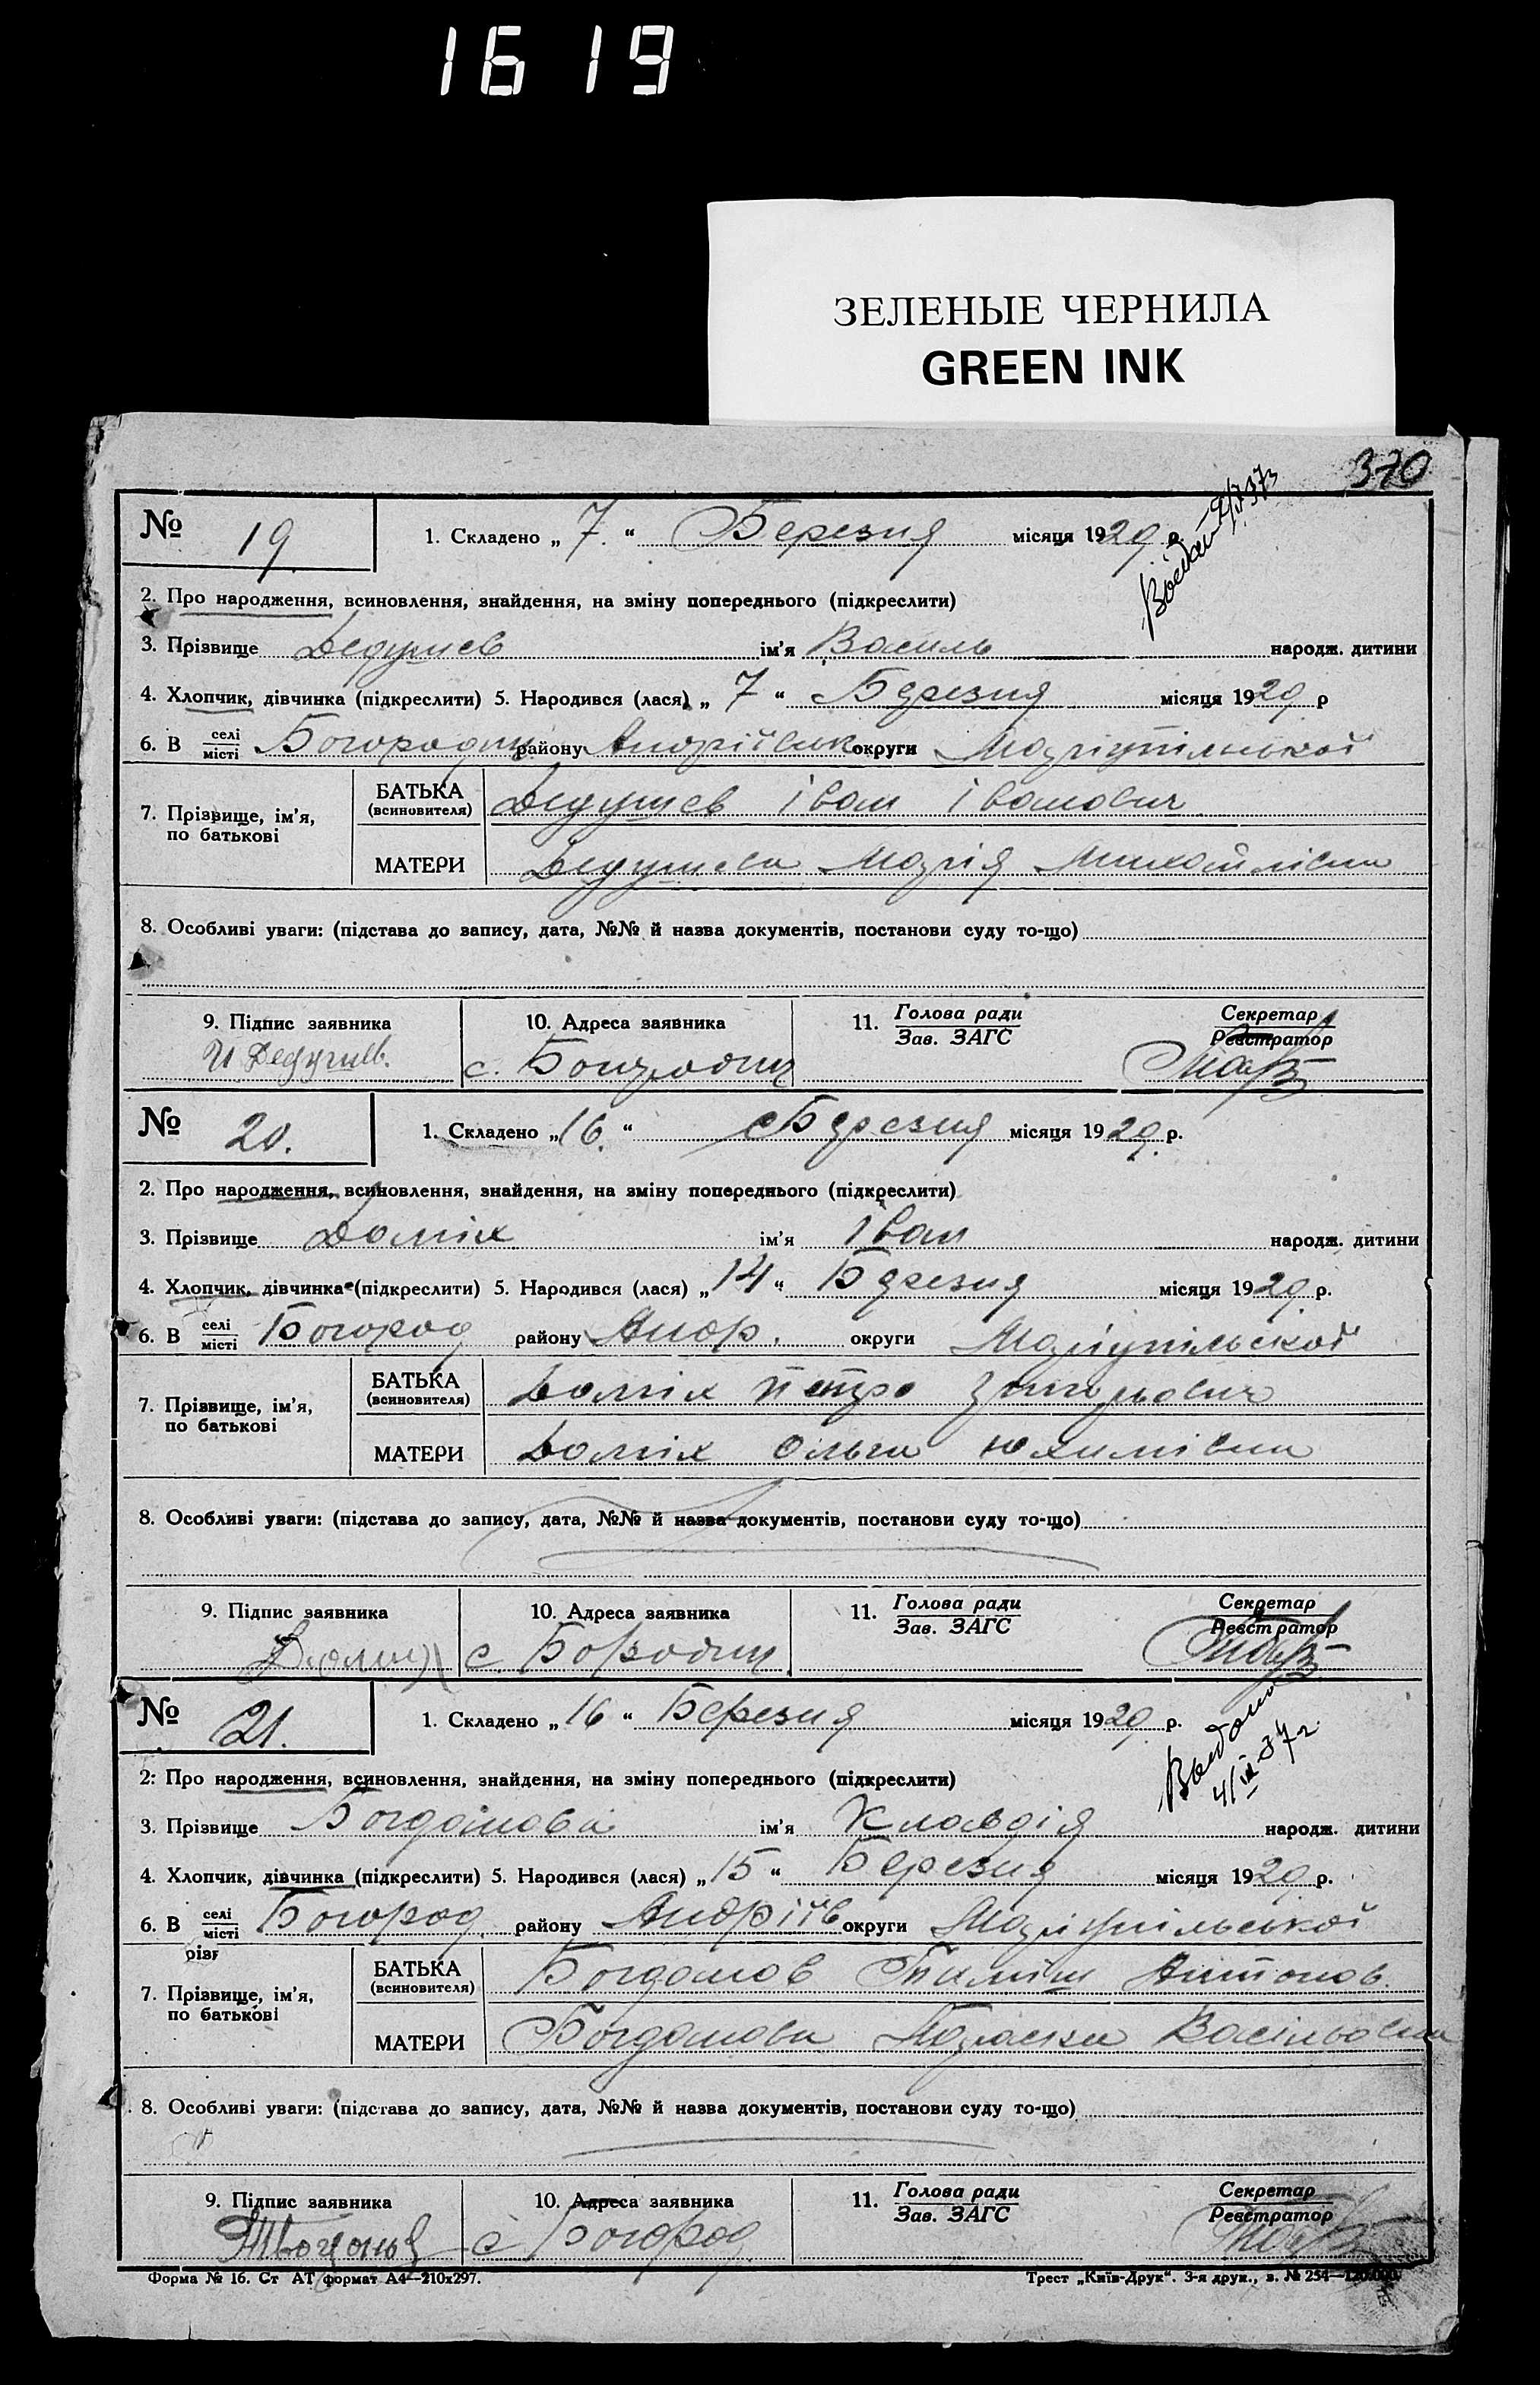 1619
ЗЕЛЕНЫЕ ЧЕРНИЛА
GREEN INK
370
№ 19. 1. Складено „7.“ Березня місяця 1929 р.
2. Про народження, всиновлення, знайдення, на зміну попереднього (підкреслити)
3. Прізвище Дедушев ім'я Василь народж. дитини
4. Хлопчик, дівчинка (підкреслити) 5. Народився (лася) „7“ Березня місяця 1929 р
6. В селі місті району округи Маріупільської
7. Прізвище, ім'я, по батькові
БАТЬКА (всиновителя) Дедушев Іван Іванович
МАТЕРИ Дедушева Марія Михайлівна
8. Особливі уваги: (підстава до запису, дата, №№ й назва документів, постанови суду то-що)
9. Підпис заявника 10. Адреса заявника 11. Голова ради Зав. ЗАГС Секретар Реєстратор
с.
№ 20. 1. Складено „16.“ Березня місяця 1929. р.
2. Про народження, всиновлення, знайдення, на зміну попереднього (підкреслити)
3. Прізвище ім'я Іван народж. дитини
4. Хлопчик, дівчинка (підкреслити) 5. Народився (лася) „14“ Березня місяця 1929 р.
6. В селі місті Богород району Андр. округи Маріупільської
7. Прізвище, ім'я, по батькові
БАТЬКА (всиновителя) Петро
МАТЕРИ Ольга Юхимівна
8. Особливі уваги: (підстава до запису, дата, №№ й назва документів, постанови суду то-що)
9. Підпис заявника 10. Адреса заявника 11. Голова ради Зав. ЗАГС Секретар Реєстратор
с.
№ 21. 1. Складено „16“ Березня місяця 1929. р.
2: Про народження, всиновлення, знайдення, на зміну попереднього (підкреслити)
3. Прізвище Богданова ім'я Клавдія народж. дитини
4. Хлопчик, дівчинка (підкреслити) 5. Народився (лася) „15“ Березня місяця 1929 р.
6. В селі місті Богород. району Андріїв округи Маріупільської
7. Прізвище, ім'я, по батькові
БАТЬКА (всиновителя) Богданов Антонов.
МАТЕРИ Богданова Параска
8. Особливі уваги: (підстава до запису, дата, №№ й назва документів, постанови суду то-що)
9. Підпис заявника 10. Адреса заявника 11. Голова ради Зав. ЗАГС Секретар Реєстратор
с Богород
Форма № 16. Ст АТ формат А4—210х297. Трест „Київ-Друк“. 3-я друк., з. № 254—120.000.